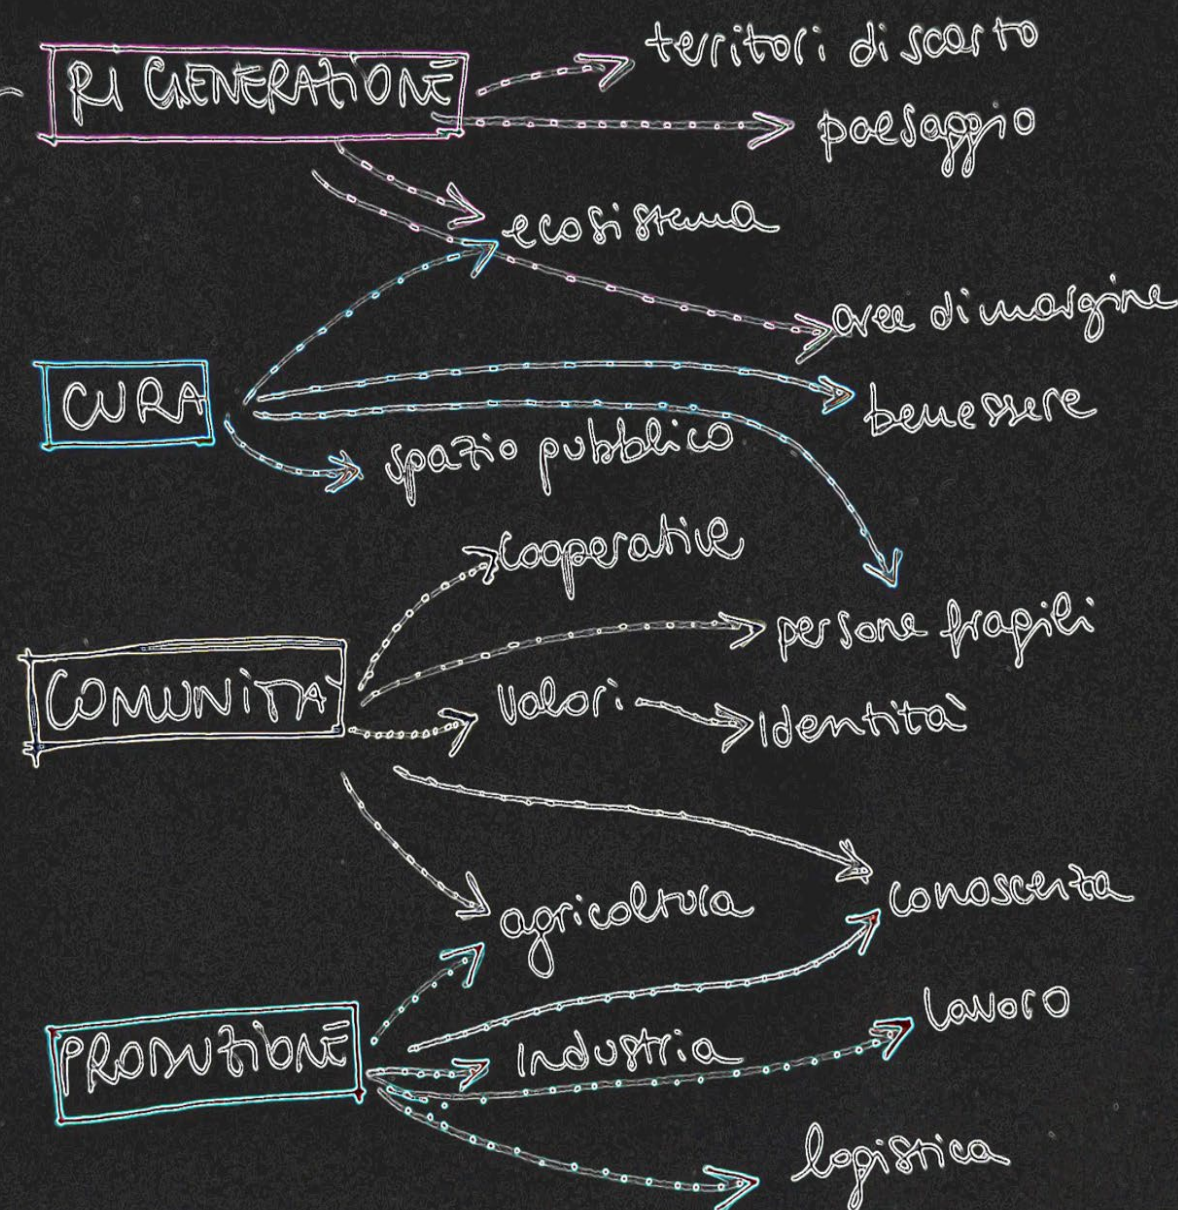 territori di scarto
RI GENERAZIONE
paesaggio
ecosistema
aree di margine
CURA
benessere
spazio pubblico
cooperative
persone fragili
COMUNITÀ
valori
Identità
agricoltura
conoscenza
PRODUZIONE
Industria
lavoro
logistica